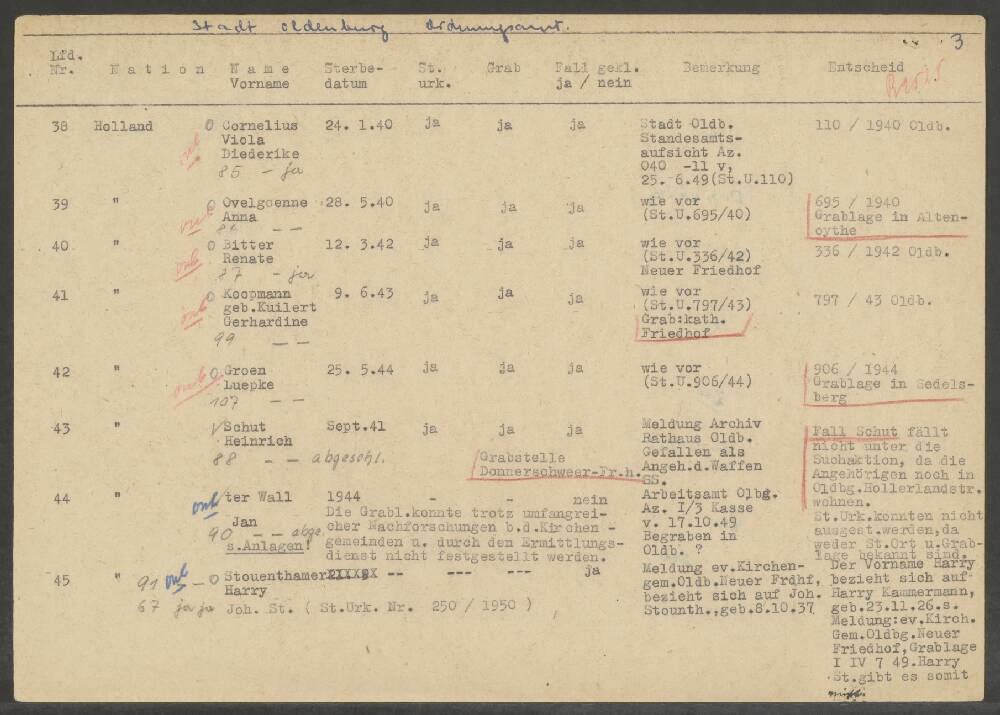 Stadt Oldenburg Ordnungsamt.
3
Lfd. Nr. Nation Name Vorname Sterbe- datum St. urk. Grab Fall gekl. ja / nein Bemerkung Entscheid
38 Holland O Cornelius 24. 1.40 ja ja ja Stadt Oldb. 110 / 1940 Oldb.
Viola Standesamts-
Diederike aufsicht Az.
85 - ja 040 -11 v,
25. 6.49(St.U.110)
39 " O Ovelgoenne 28. 5.40 ja ja ja wie vor 695 / 1940
Anna (St.U.695/40) Grablage in Alten-
86 - - oythe
40 " O Bitter 12. 3.42 ja ja ja wie vor 336 / 1942 Oldb.
Renate (St.U.336/42)
87 - ja Neuer Friedhof
41 " O Koopmann 9. 6.43 ja ja ja wie vor 797 / 43 Oldb.
geb.Kuilert (St.U.797/43)
Gerhardine Grab:kath.
99 - - Friedhof
42 " O Groen 25. 5.44 ja ja ja wie vor 906 / 1944
Luepke (St.U.906/44) Grablage in Sedels-
107 - - berg
43 " Schut Sept.41 ja ja ja Meldung Archiv Fall Schut fällt
Heinrich Rathaus Oldb. nicht unter die
88 - - abgeschl. Grabstelle Gefallen als Suchaktion, da die
Donnerschweer-Fr.h. Angeh.d.Waffen Angehörigen noch in
SS. Oldbg.Hollerlandstr.
44 " ter Wall 1944 - - nein Arbeitsamt Olbg. wohnen.
Jan Die Grabl.konnte trotz umfangrei- Az. I/3 Kasse St.Urk.konnten nicht
90 - - abge cher Nachforschungen b.d.Kirchen - v. 17.10.49 ausgest.werden,da
s.Anlagen! gemeinden u. durch den Ermittlungs- Begraben in weder St.Ort u.Grab-
dienst nicht festgestellt werden. Oldb. ? lage bekannt sind.
45 " 91 - O Stouenthamer -- --- --- ja Meldung ev.Kirchen- Der Vorname Harry
Harry gem.Oldb.Neuer Frdhf, bezieht sich auf
67 ja ja Joh. St. ( St.Urk. Nr. 250 / 1950 ) bezieht sich auf Joh. Harry Kammermann,
Stounth.,geb.8.10.37 geb.23.11.26.s.
Meldung:ev.Kirch.
Gem.Oldbg.Neuer
Friedhof,Grablage
I IV 7 49.Harry
St.gibt es somit
nicht.